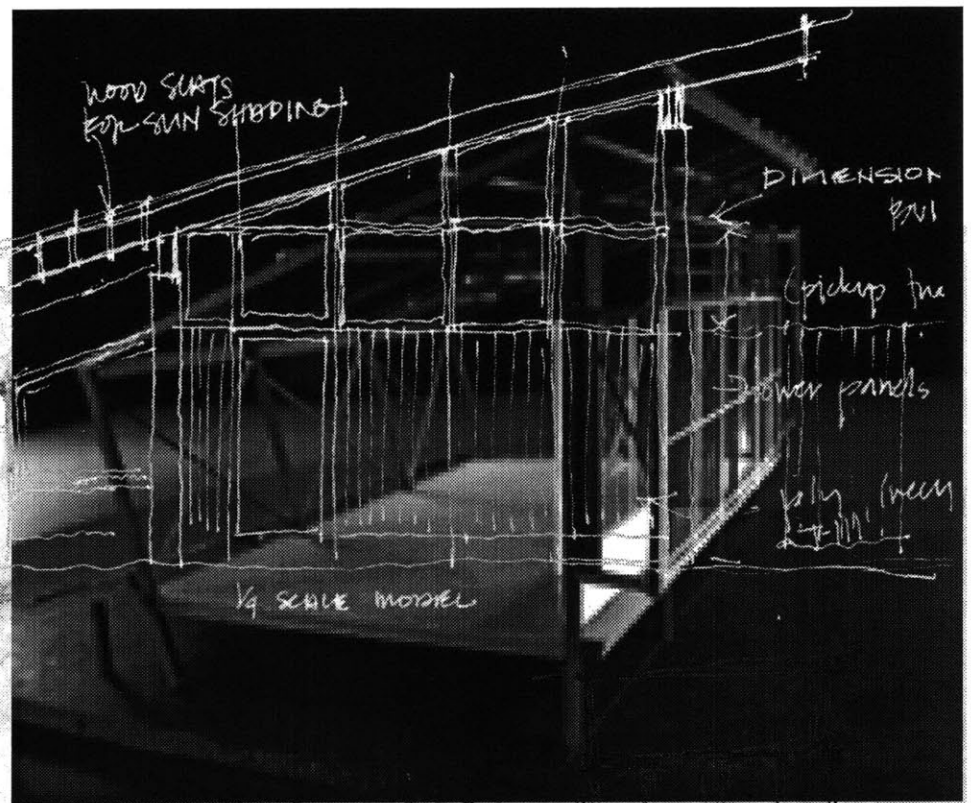 WOOD SLATS
FOR SUN SHADING
DIMENSION
(pickup the
lower panels
1/9 SCALE MODEL